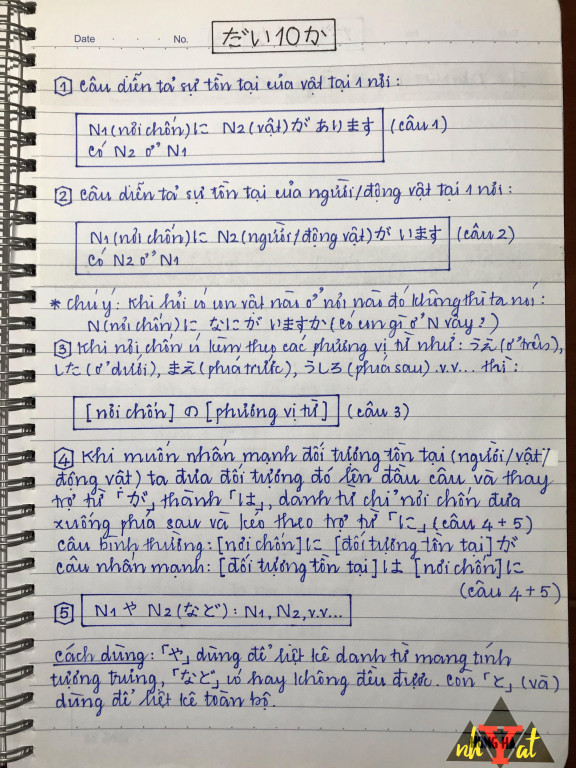 Date No. だい10か
1 Câu diễn tả sự tồn tại của vật tại 1 nơi:
N1 (nơi chốn)に N2 (vật)が あります (câu 1)
có N2 ở N1
2 Câu diễn tả sự tồn tại của người/động vật tại 1 nơi:
N1 (nơi chốn)に N2 (người/động vật)が います (câu 2)
có N2 ở N1
* Chú ý: Khi hỏi có con vật nào ở nơi nào đó không thì ta nói:
N (nơi chốn)に なにが いますか (có con gì ở N vậy?)
3 Khi nơi chốn có kèm theo các phương vị từ như: うえ (ở trên),
した (ở dưới), まえ (phía trước), うしろ (phía sau) .v.v... thì:
[nơi chốn] の [phương vị từ] (câu 3)
4 Khi muốn nhấn mạnh đối tượng tồn tại (người/vật/
động vật) ta đưa đối tượng đó lên đầu câu và thay
trợ từ 「が」 thành 「は」, danh từ chỉ nơi chốn đưa
xuống phía sau và kéo theo trợ từ 「に」 (câu 4+5)
câu bình thường: [nơi chốn]に [đối tượng tồn tại]が
câu nhấn mạnh: [đối tượng tồn tại]は [nơi chốn]に
(câu 4+5)
5 N1 や N2 (など): N1, N2, v.v...
cách dùng: 「や」 dùng để liệt kê danh từ mang tính
tượng trưng, 「など」 có hay không đều được. Còn 「と」 (và)
dùng để liệt kê toàn bộ.
nhYat